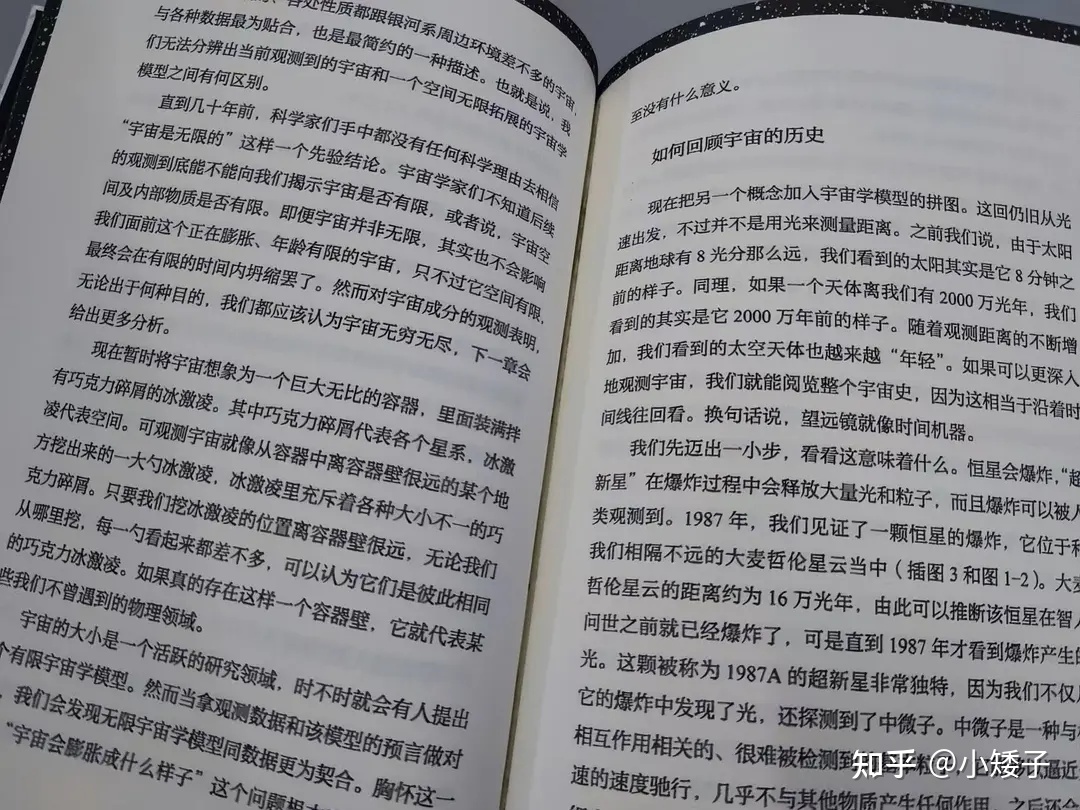 各处性质都跟银河系周边环境差不多的宇宙,
与各种数据最为贴合，也是最简约的一种描述。也就是说，我
们无法分辨出当前观测到的宇宙和一个空间无限拓展的宇宙学
模型之间有何区别。
直到几十年前，科学家们手中都没有任何科学理由去相信
“宇宙是无限的”这样一个先验结论。宇宙学家们不知道后续
的观测到底能不能向我们揭示宇宙是否有限，或者说，宇宙空
间及内部物质是否有限。即便宇宙并非无限，其实也不会影响
我们面前这个正在膨胀、年龄有限的宇宙，只不过它空间有限，
最终会在有限的时间内坍缩罢了。然而对宇宙成分的观测表明，
无论出于何种目的，我们都应该认为宇宙无穷无尽，下一章会
给出更多分析。
现在暂时将宇宙想象为一个巨大无比的容器，里面装满拌
有巧克力碎屑的冰激凌。其中巧克力碎屑代表各个星系，冰激
凌代表空间。可观测宇宙就像从容器中离容器壁很远的某个地
方挖出来的一大勺冰激凌，冰激凌里充斥着各种大小不一的巧
克力碎屑。只要我们挖冰激凌的位置离容器壁很远，无论我们
从哪里挖，每一勺看起来都差不多，可以认为它们是彼此相同
的巧克力冰激凌。如果真的存在这样一个容器壁，它就代表某
些我们不曾遇到的物理领域。
宇宙的大小是一个活跃的研究领域，时不时就会有人提出
个有限宇宙学模型。然而当拿观测数据和该模型的预言做对
，我们会发现无限宇宙学模型同数据更为契合。胸怀这一
“宇宙会膨胀成什么样子”这个问题
至没有什么意义。
如何回顾宇宙的历史
现在把另一个概念加入宇宙学模型的拼图。这回仍旧从光
速出发，不过并不是用光来测量距离。之前我们说，由于太阳
距离地球有 8 光分那么远，我们看到的太阳其实是它 8 分钟之
前的样子。同理，如果一个天体离我们有 2000 万光年，我们
看到的其实是它 2000 万年前的样子。随着观测距离的不断增
加，我们看到的太空天体也越来越“年轻”。如果可以更深入
地观测宇宙，我们就能阅览整个宇宙史，因为这相当于沿着时
间线往回看。换句话说，望远镜就像时间机器。
我们先迈出一小步，看看这意味着什么。恒星会爆炸，“超
新星”在爆炸过程中会释放大量光和粒子，而且爆炸可以被人
类观测到。1987 年，我们见证了一颗恒星的爆炸，它位于和
我们相隔不远的大麦哲伦星云当中（插图 3 和图 1-2）。大麦
哲伦星云的距离约为 16 万光年，由此可以推断该恒星在智人
问世之前就已经爆炸了，可是直到 1987 年才看到爆炸产生的
光。这颗被称为 1987A 的超新星非常独特，因为我们不仅
它的爆炸中发现了光，还探测到了中微子。中微子是一种与
相互作用相关的、很难被检测到的
速的速度驰行，几乎不与其他物质产生任何作用。之后还会
知乎 @小矮子